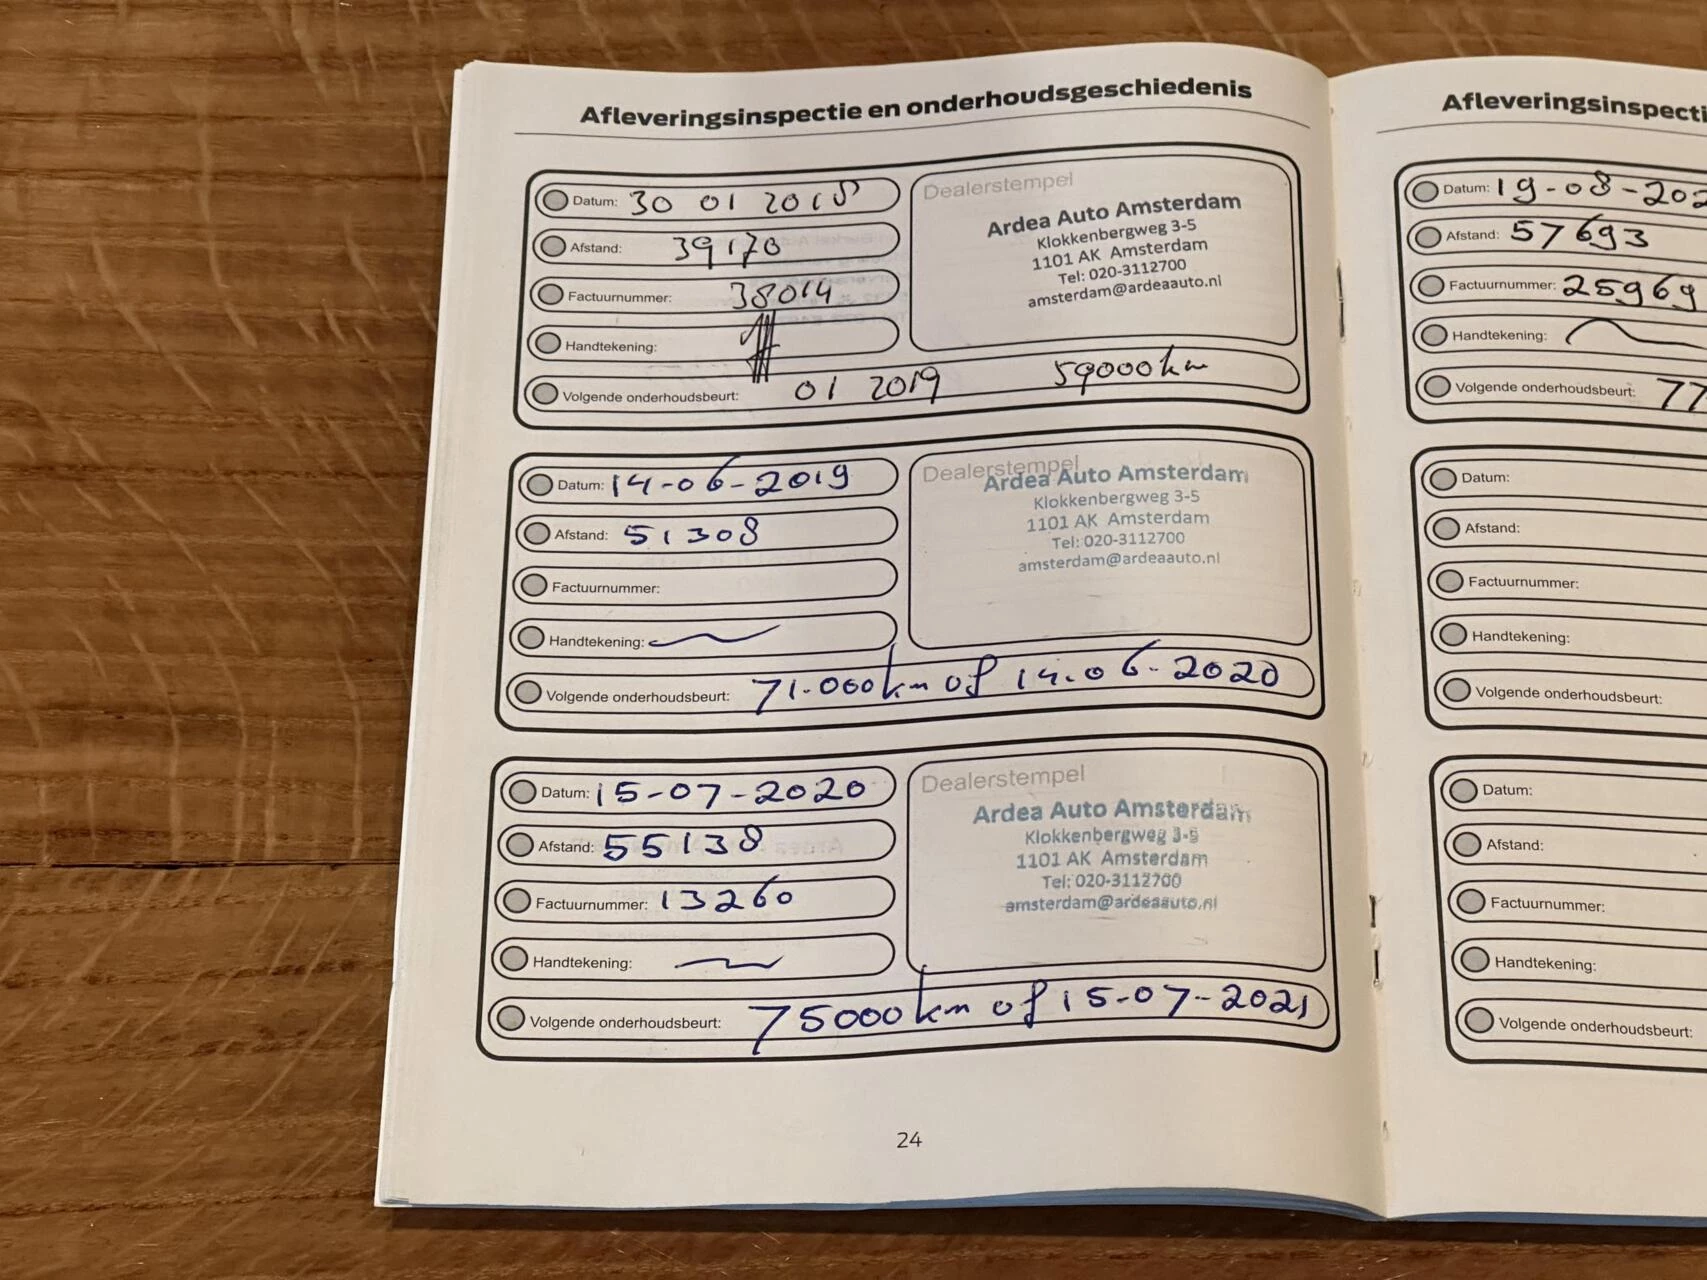 Afleveringsinspectie en onderhoudsgeschiedenis
Datum: 30 01 2018
Afstand: 39170
Factuurnummer: 38014
Handtekening:
Volgende onderhoudsbeurt: 01 2019 59000km
Dealerstempel
Ardea Auto Amsterdam
Klokkenbergweg 3-5
1101 AK Amsterdam
Tel: 020-3112700
amsterdam@ardeaauto.nl
Datum: 14-06-2019
Afstand: 51308
Factuurnummer:
Handtekening:
Volgende onderhoudsbeurt: 71.000km of 14.06-2020
Dealerstempel
Ardea Auto Amsterdam
Klokkenbergweg 3-5
1101 AK Amsterdam
Tel: 020-3112700
amsterdam@ardeaauto.nl
Datum: 15-07-2020
Afstand: 55138
Factuurnummer: 13260
Handtekening:
Volgende onderhoudsbeurt: 75000km of 15-07-2021
Dealerstempel
Ardea Auto Amsterdam
Klokkenbergweg 3-5
1101 AK Amsterdam
Tel: 020-3112700
amsterdam@ardeaauto.nl
24
Afleveringsinspecti
Datum: 19-08-202
Afstand: 57693
Factuurnummer: 25969
Handtekening:
Volgende onderhoudsbeurt: 77
Datum:
Afstand:
Factuurnummer:
Handtekening:
Volgende onderhoudsbeurt:
Datum:
Afstand:
Factuurnummer:
Handtekening:
Volgende onderhoudsbeurt: